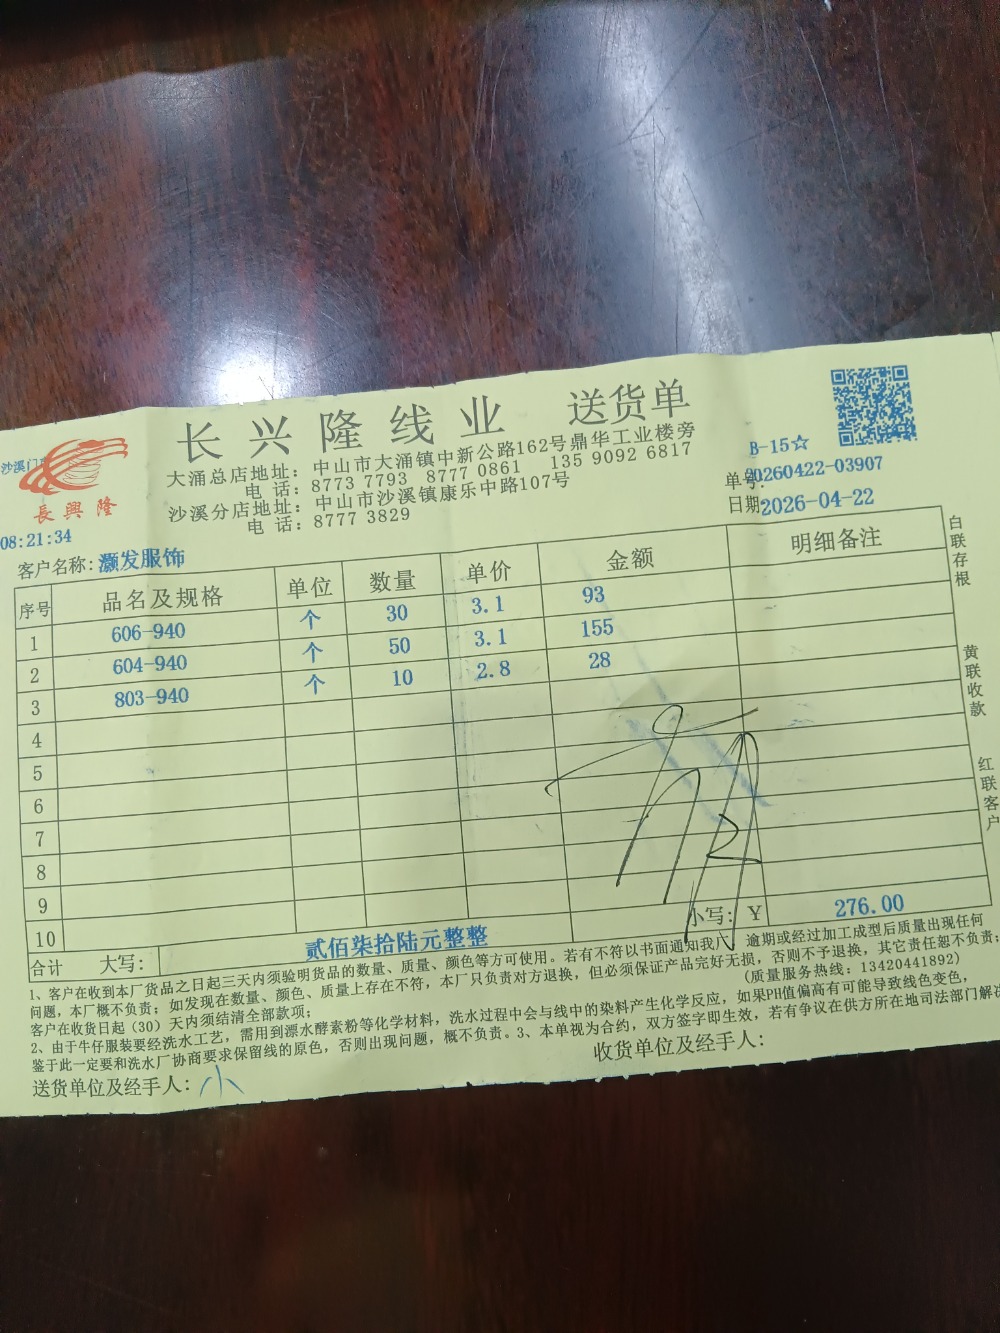 长兴隆线业 送货单
大涌总店地址：中山市大涌镇中新公路162号鼎华工业楼旁
电 话：8773 7793 8777 0861 135 9092 6817
沙溪分店地址：中山市沙溪镇康乐中路107号
电 话：8777 3829
沙溪门
長興隆
08:21:34
B-15☆
单号：20260422-03907
日期：2026-04-22
客户名称：灏发服饰
序号 品名及规格 单位 数量 单价 金额 明细备注
1 606-940 个 30 3.1 93
2 604-940 个 50 3.1 155
3 803-940 个 10 2.8 28
4
5
6
7
8
9
10
合计 大写：贰佰柒拾陆元整整 小写：￥ 276.00
白联存根
黄联收款
红联客户
1、客户在收到本厂货品之日起三天内须验明货品的数量、质量、颜色等方可使用。若有不符以书面通知我厂，逾期或经过加工成型后质量出现任何
问题，本厂概不负责；如发现在数量、颜色、质量上存在不符，本厂只负责对方退换，但必须保证产品完好无损，否则不予退换，其它责任恕不负责；
客户在收货日起（30）天内须结清全部款项； （质量服务热线：13420441892）
2、由于牛仔服装要经洗水工艺，需用到漂水酵素粉等化学材料，洗水过程中会与线中的染料产生化学反应，如果PH值偏高有可能导致线色变色，
鉴于此一定要和洗水厂协商要求保留线的原色，否则出现问题，概不负责。3、本单视为合约，双方签字即生效，若有争议在供方所在地司法部门解决
送货单位及经手人：小
收货单位及经手人：